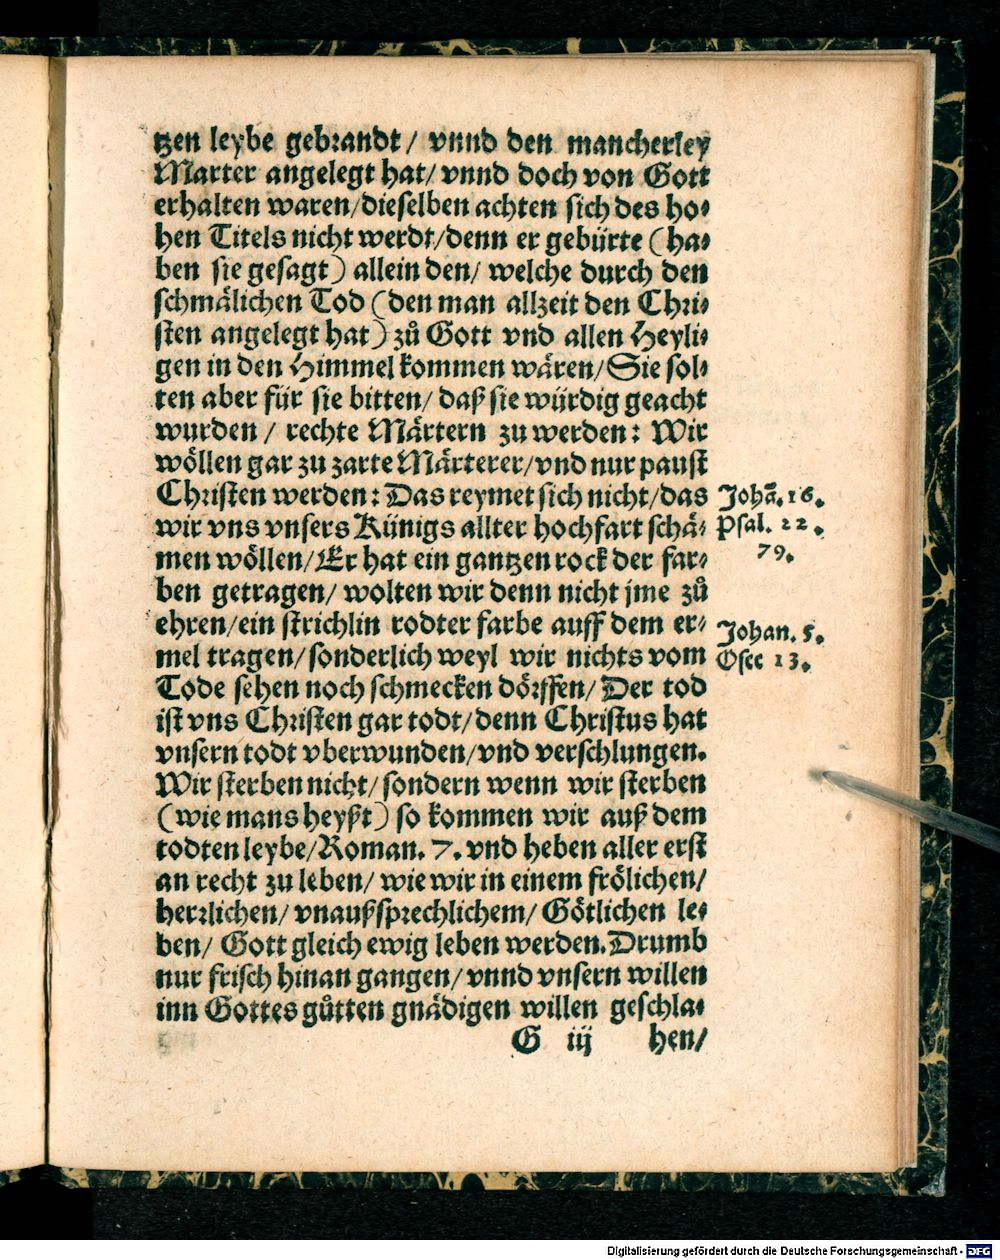 tzen leybe gebrandt / vnnd den mancherley
Marter angelegt hat / vnnd doch von Gott
erhalten waren / dieselben achten sich des ho⸗
hen Titels nicht werdt / denn er gebürte (ha⸗
ben sie gesagt) allein den / welche durch den
schmälichen Tod (den man allzeit den Chri⸗
sten angelegt hat) zů Gott vnd allen Heyli⸗
gen in den Himmel kommen wären / Sie sol⸗
ten aber für sie bitten / daß sie würdig geacht
wurden / rechte Märtern zu werden: Wir
wöllen gar zu zarte Märterer / vnd nur paust
Christen werden: Das reymet sich nicht / das
Johã. 16.
wir vns vnsers Künigs allter hochfart schä⸗
Psal. 22.
men wöllen / Er hat ein gantzen rock der far⸗
79.
ben getragen / wolten wir denn nicht jme zů
ehren / ein strichlin rodter farbe auff dem er⸗
Johan. 5.
mel tragen / sonderlich weyl wir nichts vom
Osee 13.
Tode sehen noch schmecken dörffen / Der tod
ist vns Christen gar todt / denn Christus hat
vnsern todt vberwunden / vnd verschlungen.
Wir sterben nicht / sondern wenn wir sterben
(wie mans heyßt) so kommen wir auß dem
todten leybe / Roman. 7. vnd heben aller erst
an recht zu leben / wie wir in einem frölichen /
herrlichen / vnaußsprechlichem / Götlichen le⸗
ben / Gott gleich ewig leben werden. Drumb
nur frisch hinan gangen / vnnd vnsern willen
inn Gottes gůtten gnädigen willen geschla⸗
G iij hen /
Digitalisierung gefördert durch die Deutsche Forschungsgemeinschaft - DFG